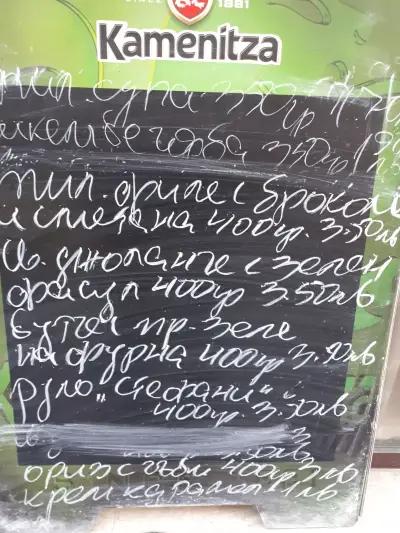 SINCE 1881
Kamenitza
пил. супа 350гр
шкембе чорба 350гр
пил. филе с броколи
и сметана 400гр. 3.50лв
св. джолан с зелен
фасул 400гр 3.50лв
Бутче пр. зеле
на фурна 400гр 3.90лв.
руло "Стефани"
400гр. 3.50лв
ориз с гъби 400гр 3лв
крем карамел 1лв